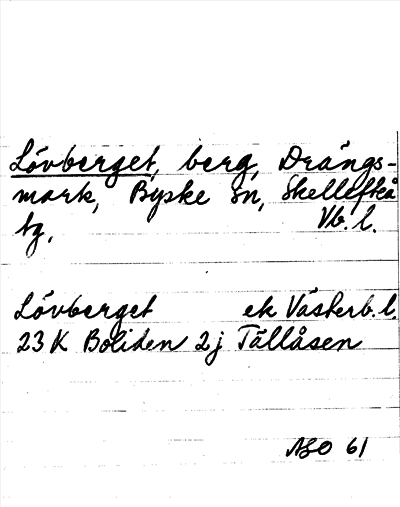 Lövberget, berg, Drängs-
mark, Byske sn, Skellefteå
tg, Vb. l.
Lövberget ek Västerb. l.
23 K Boliden 2j Tällåsen
ASO 61